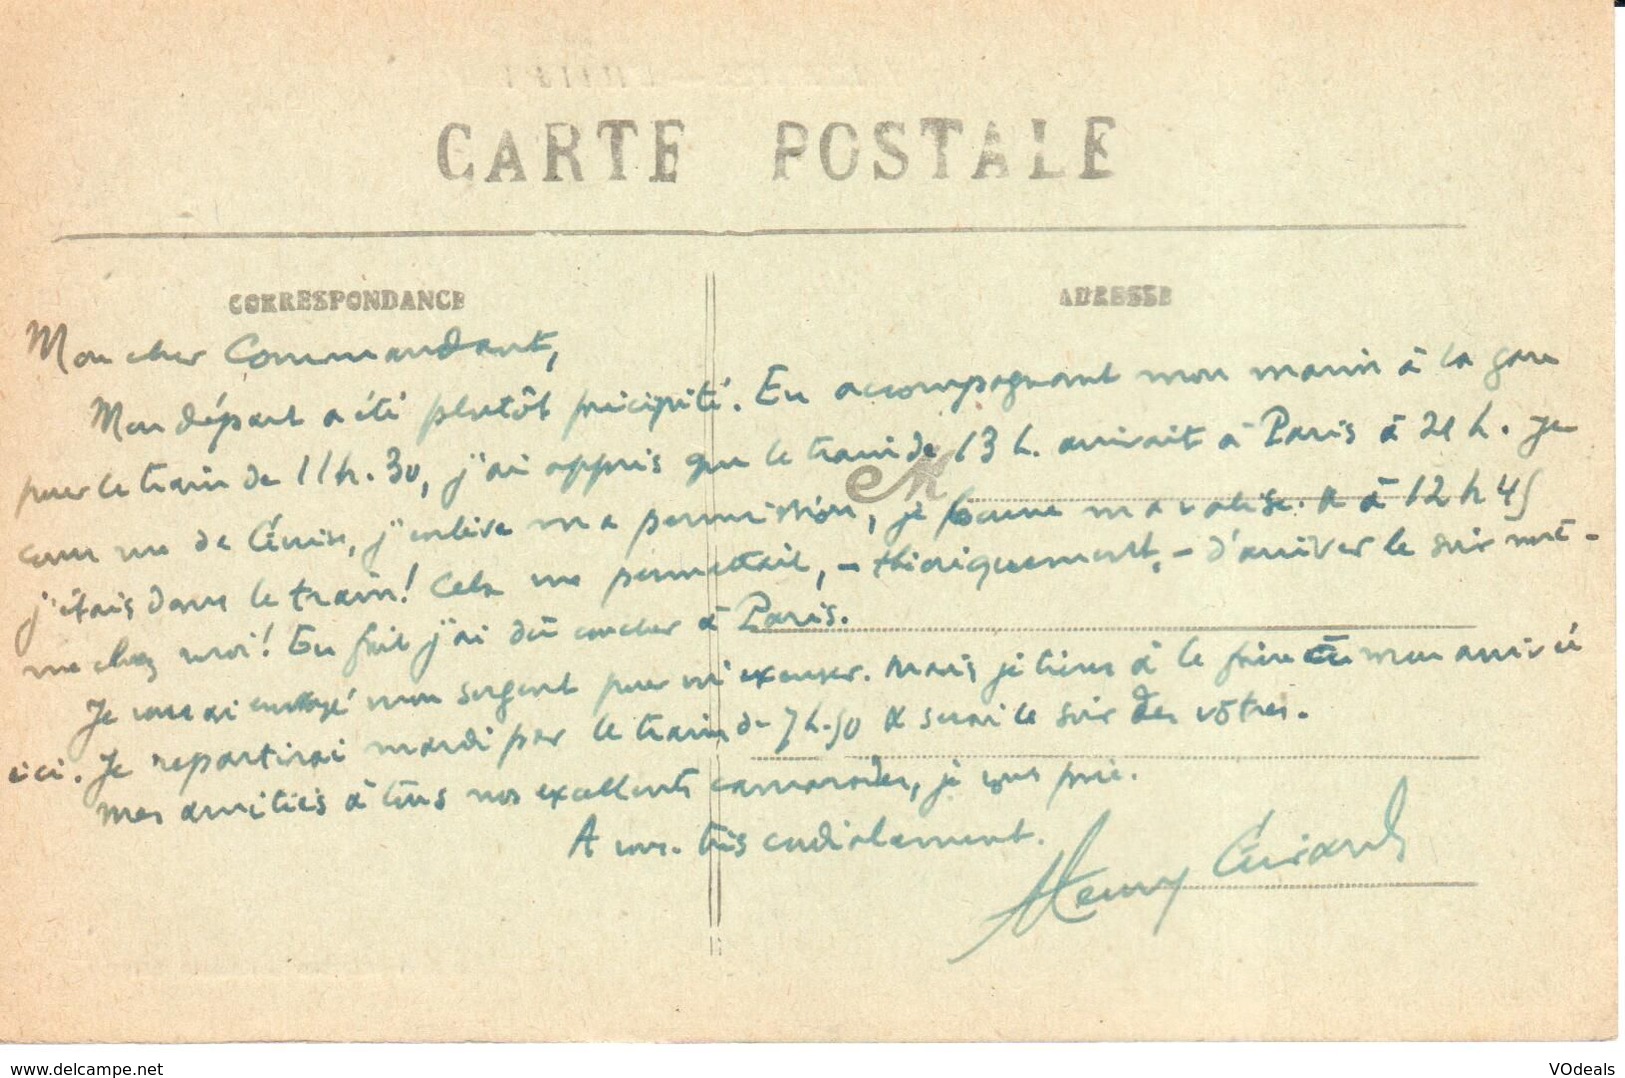 CARTE POSTALE
CORRESPONDANCE
ADRESSE
Mon cher Commandant,
Mon départ a été plutôt précipité. En accompagnant mon marin à la gare
pour le train de 11h.30, j'ai appris que le train de 13 h. arrivait à Paris à 21 h. Je
cours de j'enlève ma permission, je boucle ma valise. & à 12 h 45
j'étais dans le train! Cela me permettait, – théoriquement, – d'arriver le soir mê-
me chez moi! En fait j'ai dû coucher à Paris.
Je vous ai envoyé mon sergent pour m'excuser. Mais je tiens à le faire dès mon arrivée
ici. Je repartirai mardi par le train de 7 h.50 & serai le soir des vôtres.
Mes amitiés à tous nos excellents camarades, je vous prie.
A vous très cordialement.
Henry Guirard
M
delcampe.net
VOdeals